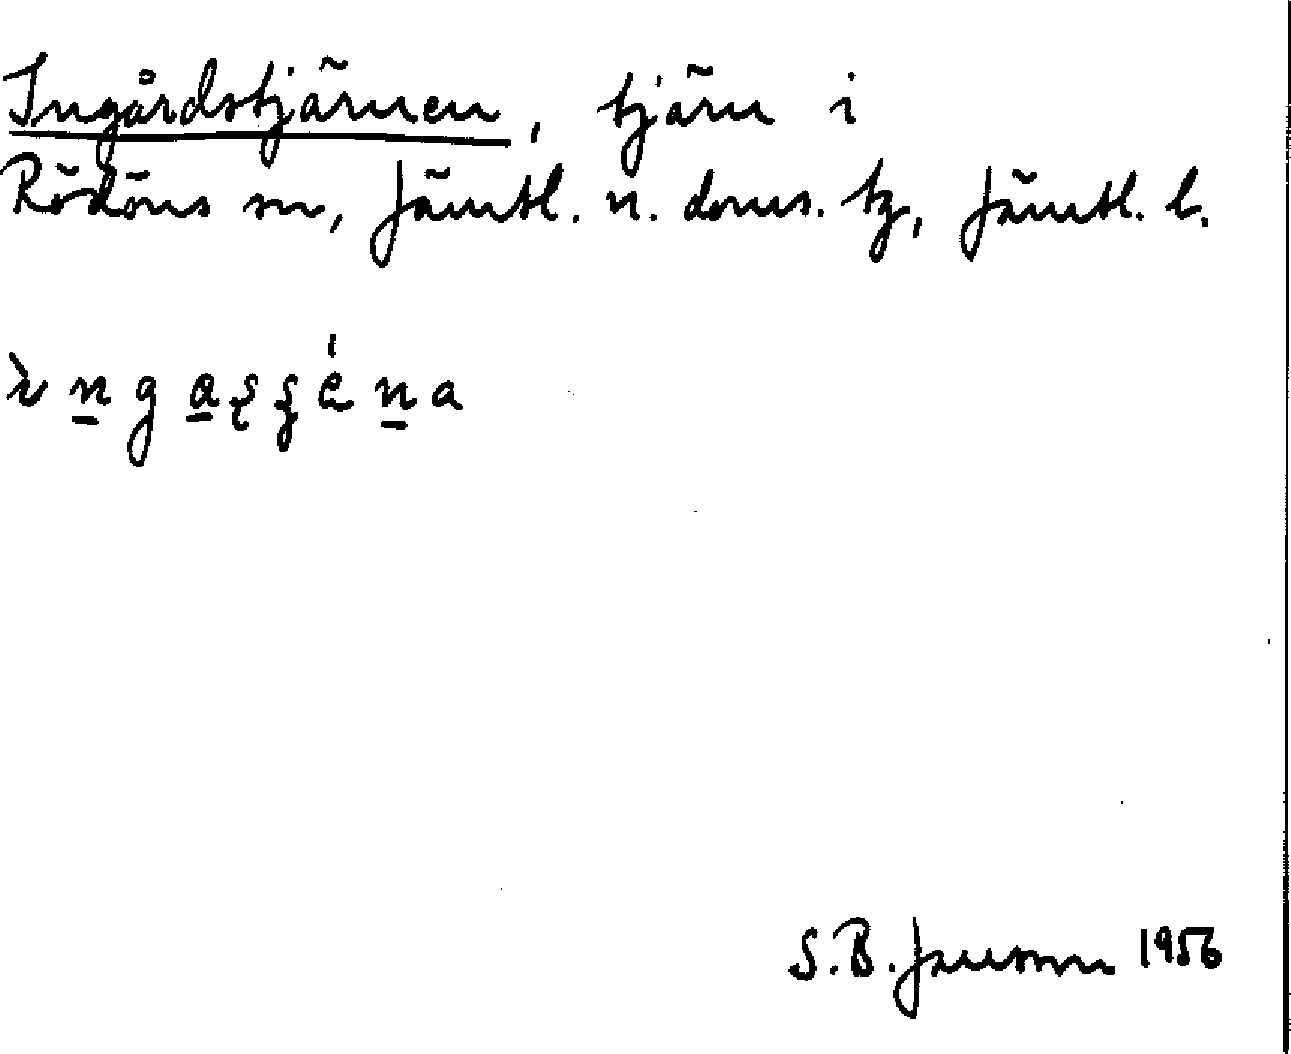 Ingårdstjärnen, tjärn i
Rödöns sn, Jämtl. n. doms. tg, Jämtl. l.
S.B. Jansson 1956